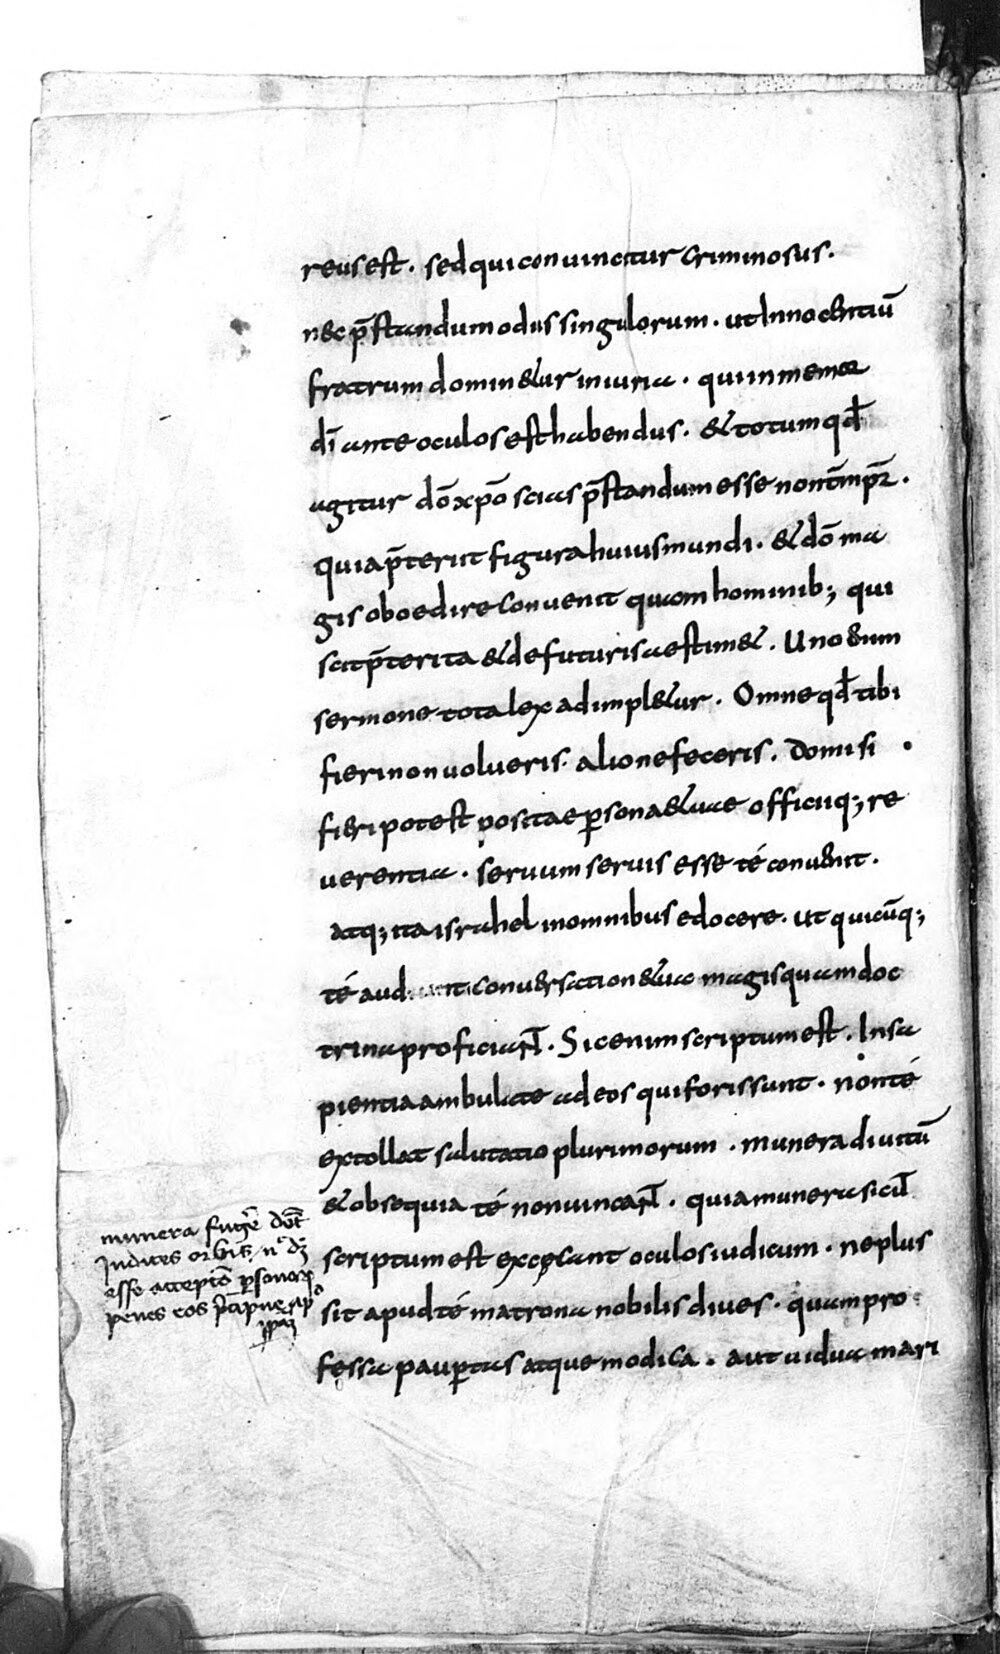 reus est . sed qui conuincitur criminosus .
nec p̄standum odiis singulorum . ut Innocentiū
fratrum dominetur iniuria . qui inmemor
dī ante oculos est habendus . & totum qd̄
agitur dō xp̄o scias p̄standum esse non
quia p̄teriit figura huius mundi . & dō ma
gis oboedire conuenit quam hominib; qui
scit p̄terita & de futuris aestimet . Uno enim
sermone tota lex adimpletur . Omne qd̄ tibi
fieri non uolueris . alio ne feceris . domi si
fieri potest positae personae tuae officiiq; re
uerentia . seruum seruis esse té conuenit .
atq; ita israhel in omnibus edocere . ut quicūq;
té conuersatione tua magis quam doc
trina proficiant . Sic enim scriptum est . In sa
pientia ambulate ad eos qui foris sunt . non té
extollat salutatio plurimorum . munera diuitū
& obsequia té non uincant . quia munera sicut
scriptum est excęcant oculos iudicum . ne plus
sit apud té matrona nobilis diues . quam pro
fessa paupertas atque modica . aut uidua mari
munera fugē dēt
Judices orbis
esse
penes eos